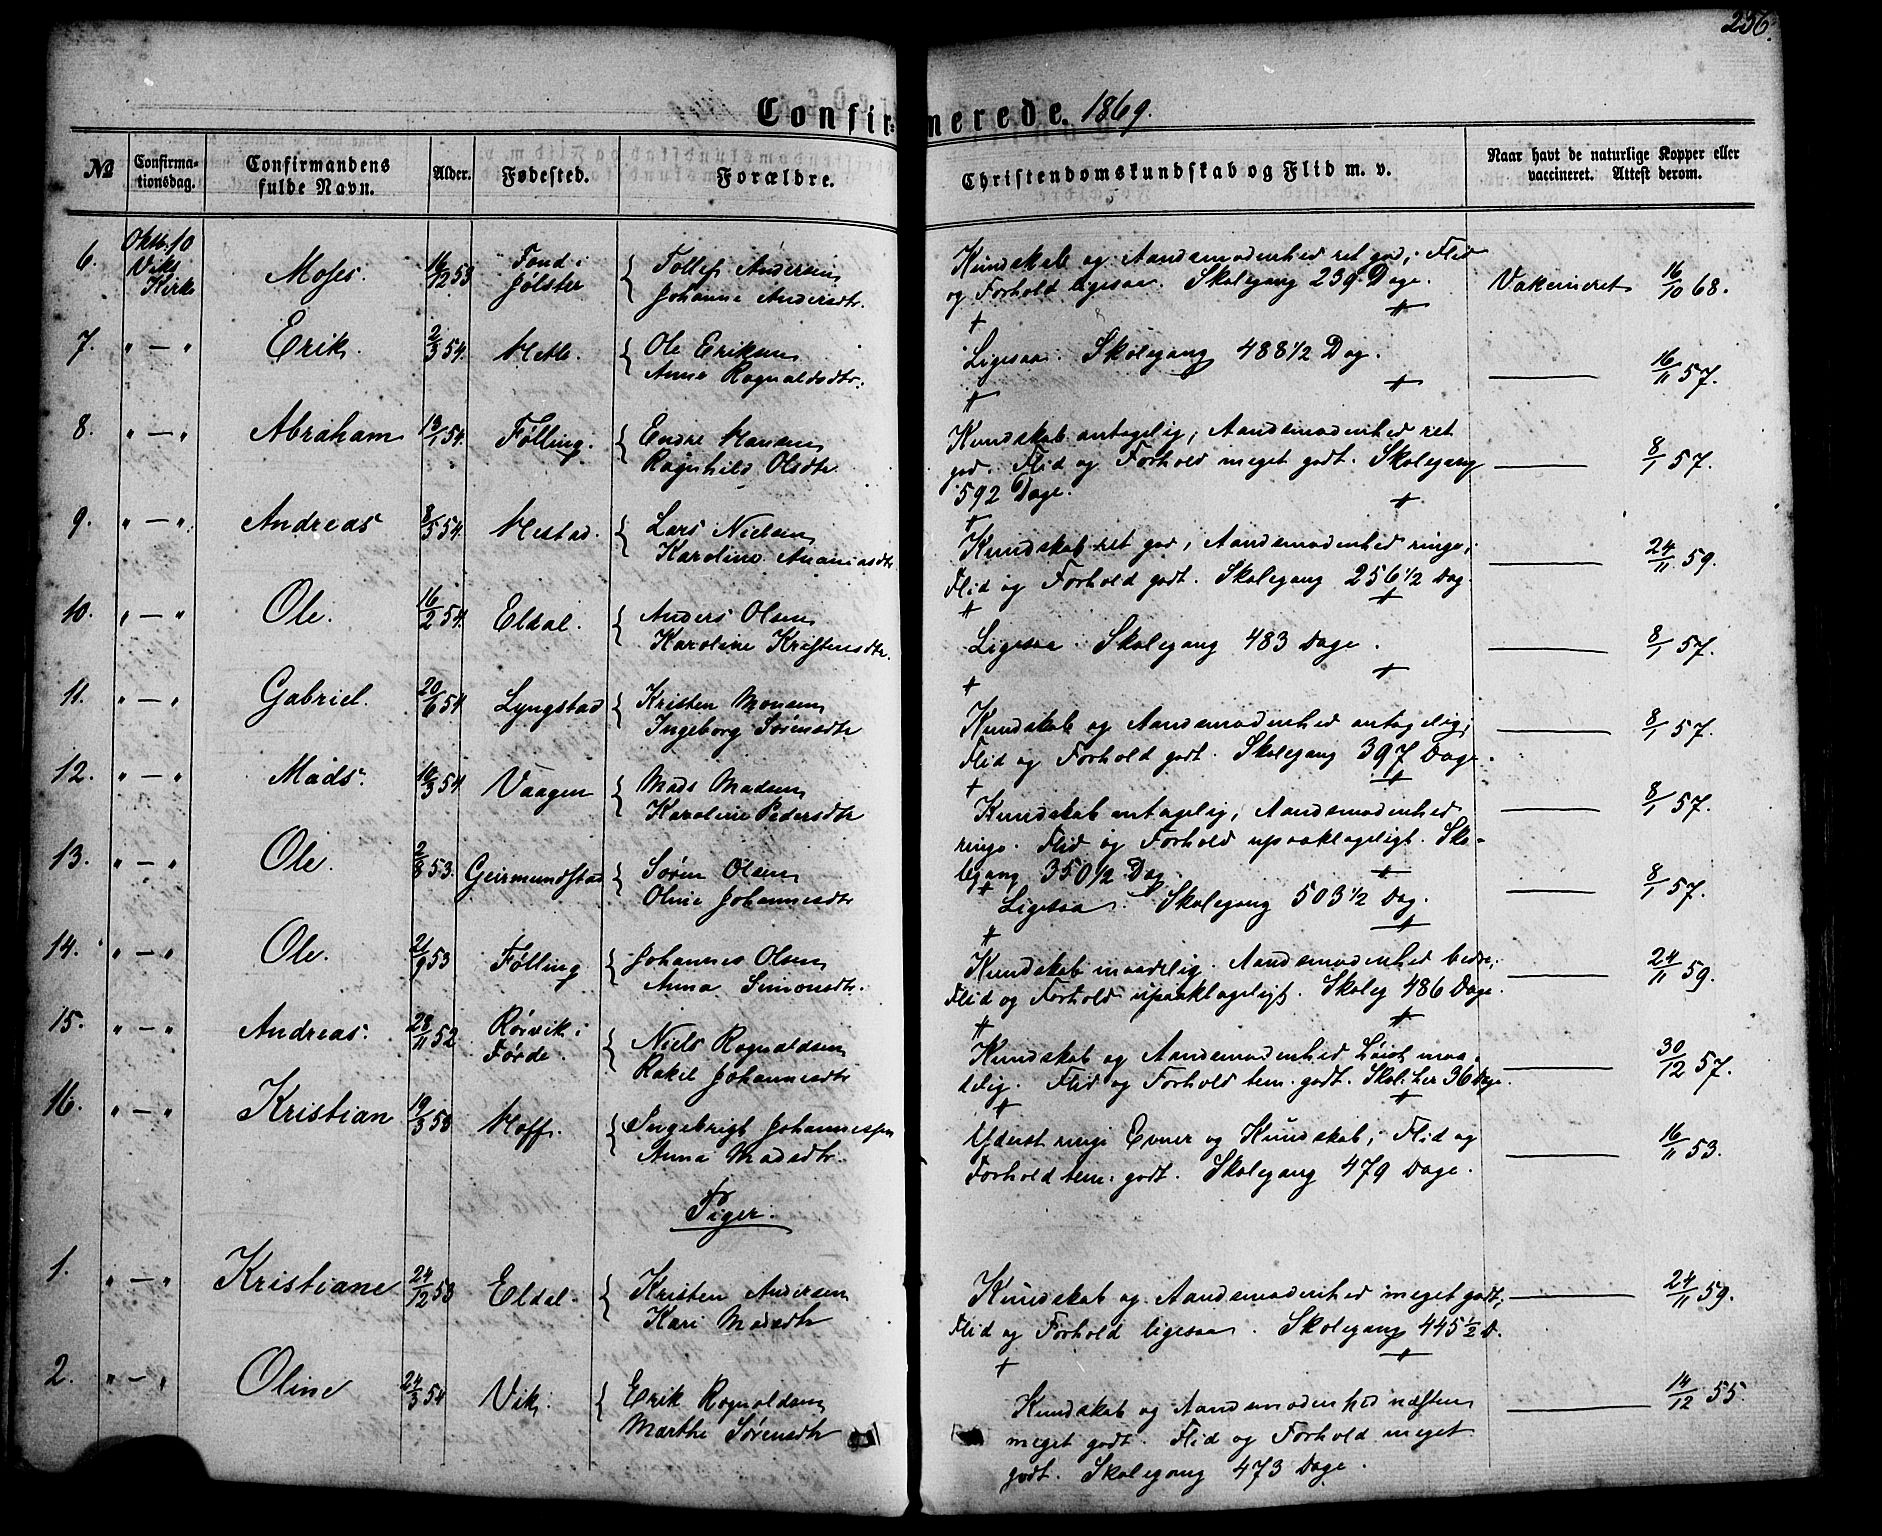 256.
Confirmerede. 1869.
№ Confirmationsdag. Confirmandens fulde Navn. Alder. Fødested. Forældre. Christendomskundskab og Flid m. v. Naar havt de naturlige Kopper eller vaccineret. Attest derom.
6. Oktb. 10 Viks Kirke Moses. 16/12 53 Fond i Jølster { Tollef Andersen
Johanne Andersdtr.
Kundskab og Aandsmodenhed ret god; Flid
og Forhold ligesaa. Skolegang 239 Dage. Vakcineret 16/10 68.
7. " — " Erik. 2/3 54. { Ole Eriksen
Anne Rognaldsdtr.
Ligesaa. Skolegang 488 1/2 Dag. — 16/11 57.
8. " — " Abraham 13/1 54. Følling. { Endre Hansen
Ragnhild Olsdtr
Kundskab antagelig; Aandsmodenhed ret
god. Flid og Forhold meget godt. Skolegang
592 Dage. — 8/1 57.
9. " — " Andreas 8/5 54. Hestad. { Lars Nielsen
Karoline Ananiasdtr
Kundskab ret god; Aandsmodenhed ringe;
Flid og Forhold godt. Skolegang 256 1/2 Dag. — 24/11 59.
10. " — " Ole. 16/2 54. Eldal. { Anders Olsen
Karoline Kristensdtr.
Ligesaa. Skolegang 483 Dage. — 8/1 57.
11. " — " Gabriel. 20/6 54 Lyngstad { Kristen Monsen
Ingeborg Sørensdtr
Kundskab og Aandsmodenhed antagelig;
Flid og Forhold godt. Skolegang 397 Dage. — 8/1 57.
12. " — " Mads. 19/3 54. Vaagen { Mads Madsen
Karoline Pedersdtr
Kundskab antagelig; Aandsmodenhed
ringe. Flid og Forhold upaaklageligt. Sko-
legang 350 1/2 Dag. — 8/1 57.
13. " — " Ole. 2/8 53. Geirmundstad { Søren Olsen
Oline Johannesdtr
Ligesaa. Skolegang 503 1/2 Dag. — 8/1 57.
14. " — " Ole. 21/9 53 Følling { Johannes Olsen
Anna Simonsdtr.
Kundskab maadelig. Aandsmodenhed bedre;
Flid og Forhold upaaklageligt. Skoleg 486 Dage. — 24/11 59.
15. " — " Andreas. 28/11 52 Rørvik i Førde. { Niels Rognaldsen
Rakel Johannesdtr
Kundskab og Aandsmodenhed høist maa-
delig. Flid og Forhold tem. godt. Skol. her 36 Dage — 30/12 57.
16. " — " Kristian 19/3 53 Hoff. { Ingebrigt Johannessen
Anna Madsdtr.
Yderst ringe Evner og Kundskab; Flid og
Forhold tem. godt. Skolegang 479 Dage. — 16/11 53.
Piger.
1. " — " Kristiane 24/12 53 Eldal. { Kristen Andersen
Kari Madsdtr
Kundskab og Aandsmodenhed meget godt;
Flid og Forhold ligesaa. Skolegang 445 1/2 D. — 24/11 59.
2. " — " Oline 24/3 54 Vik. { Erik Rognaldsen
Marthe Sørensdtr
Kundskab og Aandsmodenhed næsten
meget godt. Flid og Forhold meget
godt. Skolegang 473 Dage. — 14/12 55.